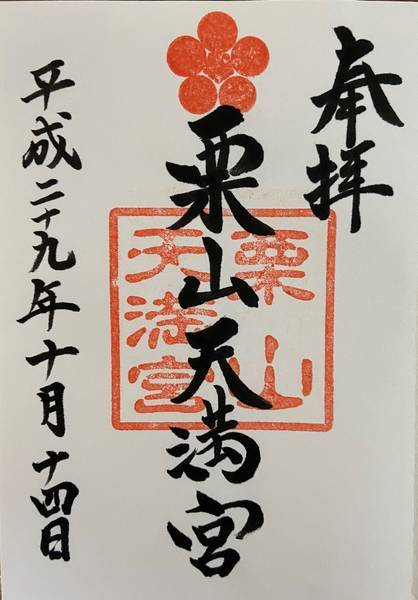 奉拝
栗山天満宮
栗山
天満宮
平成二十九年十月十四日